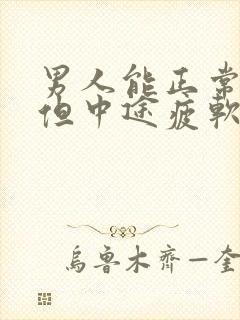 男人能正常
但中途疲軟
烏魯木齊—奎